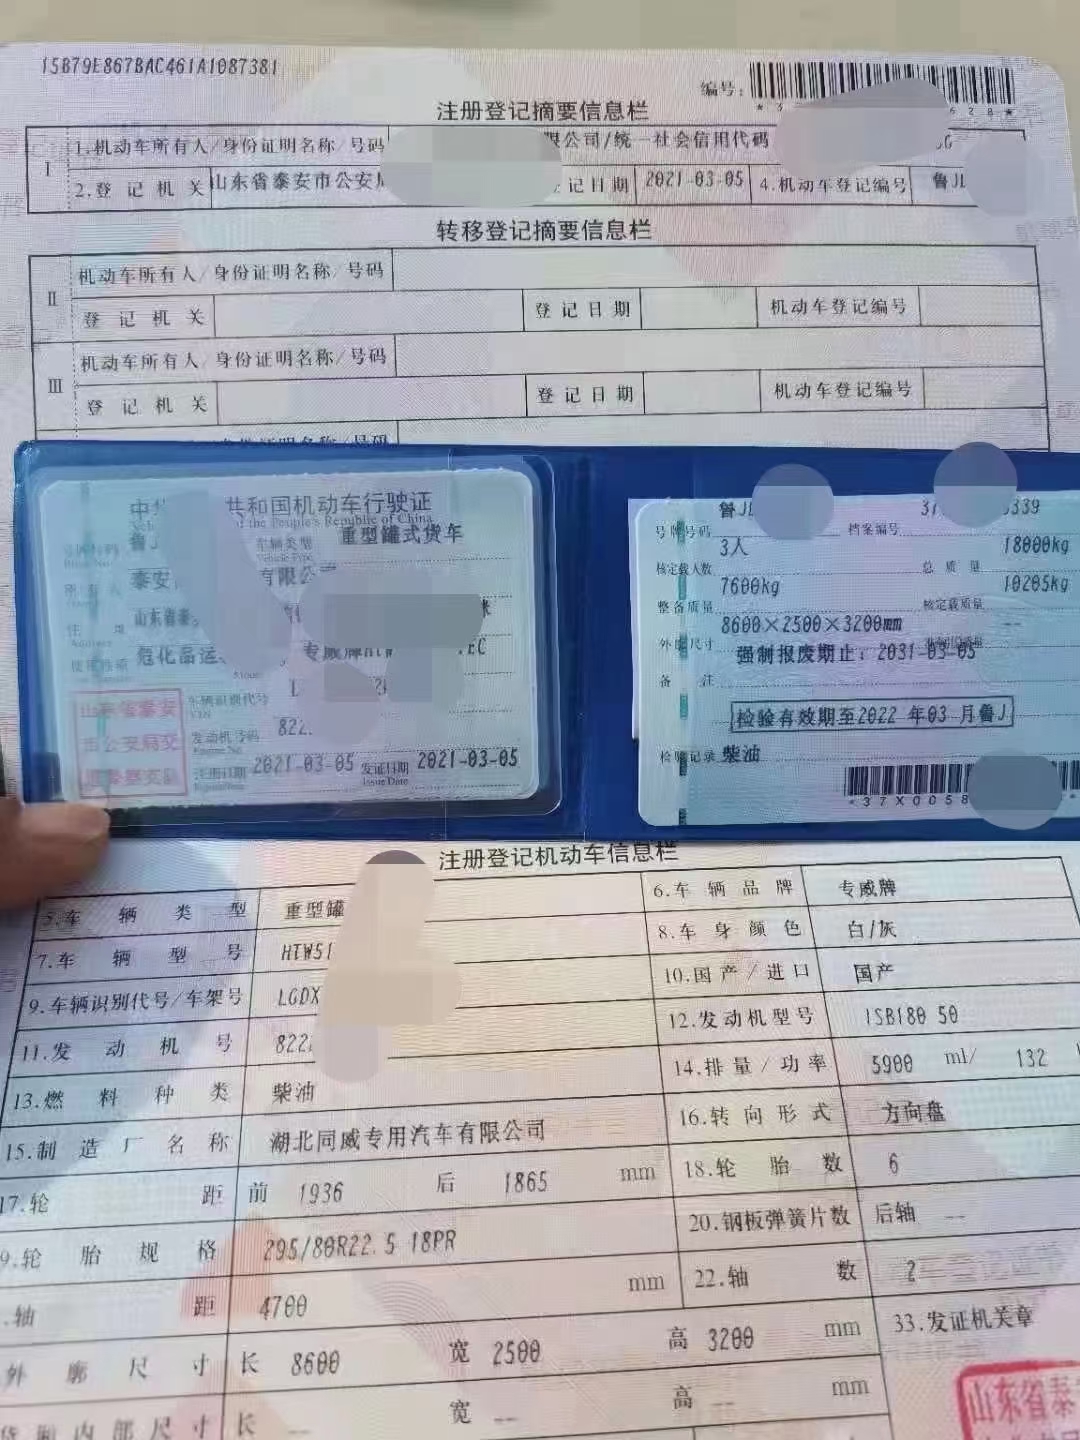 15B79E867BAC461A1087381
编号:
注册登记摘要信息栏
I
1.机动车所有人/身份证明名称/号码 限公司/统一社会信用代码
2.登记机关 山东省泰安市公安局 登记日期 2021-03-05 4.机动车登记编号 鲁J
转移登记摘要信息栏
II
机动车所有人/身份证明名称/号码
登记机关 登记日期 机动车登记编号
III
机动车所有人/身份证明名称/号码
登记机关 登记日期 机动车登记编号
共和国机动车行驶证
of the People's Republic of China
鲁J 车辆类型 重型罐式货车
Vehicle Type
泰安 有限公
山东省泰
Address
危化品运 专威牌HTW EC
车辆识别代号 L
VIN
发动机号码 822
Engine No.
注册日期 2021-03-05 发证日期 2021-03-05
Issue Date
山东省泰安
市公安局交
鲁J 339
号牌号码 档案编号
3人 18000kg
核定载人数 总质量
7600kg 10205kg
整备质量 核定载质量
8600×2500×3200mm --
外廓尺寸
强制报废期止: 2031-03-05
备注
检验有效期至2022 年03 月鲁J
检验记录 柴油
*37X0058
注册登记机动车信息栏
5.车辆类型 重型罐 6.车辆品牌 专威牌
7.车辆型号 HTW51 8.车身颜色 白/灰
9.车辆识别代号/车架号 LGDX 10.国产/进口 国产
11.发动机号 822 12.发动机型号 ISB180 50
13.燃料种类 柴油 14.排量/功率 5900 ml/ 132
15.制造厂名称 湖北同威专用汽车有限公司 16.转向形式 方向盘
17.轮距 前 1936 后 1865 mm 18.轮胎数 6
9.轮胎规格 295/80R22.5 18PR 20.钢板弹簧片数 后轴 --
.轴距 4700 mm 22.轴数 2
外廓尺寸 长 8600 宽 2500 高 3200 mm 33.发证机关章
货厢内部尺寸 长 -- 宽 -- 高 -- mm
山东省泰